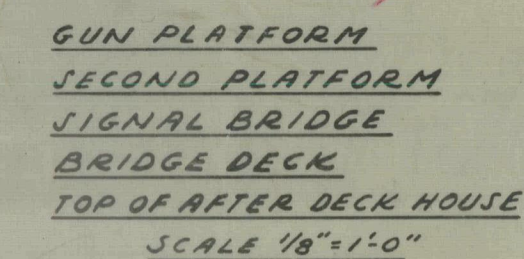 GUN PLATFORM
SECOND PLATFORM
SIGNAL BRIDGE
BRIDGE DECK
TOP OF AFTER DECK HOUSE
SCALE 1/8"=1'-0"